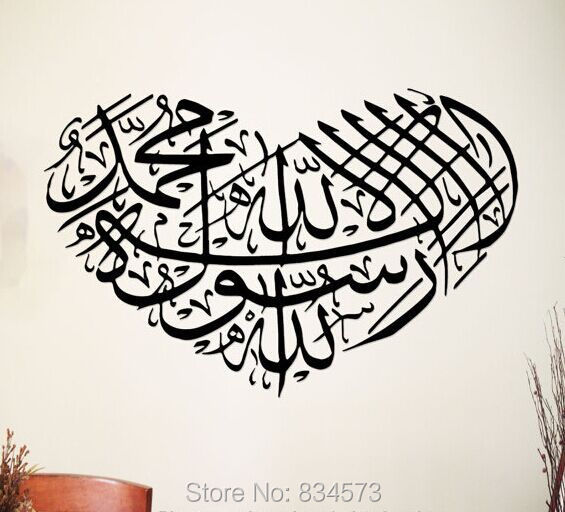 لا إله إلا الله محمد رسول الله
Store No: 834573